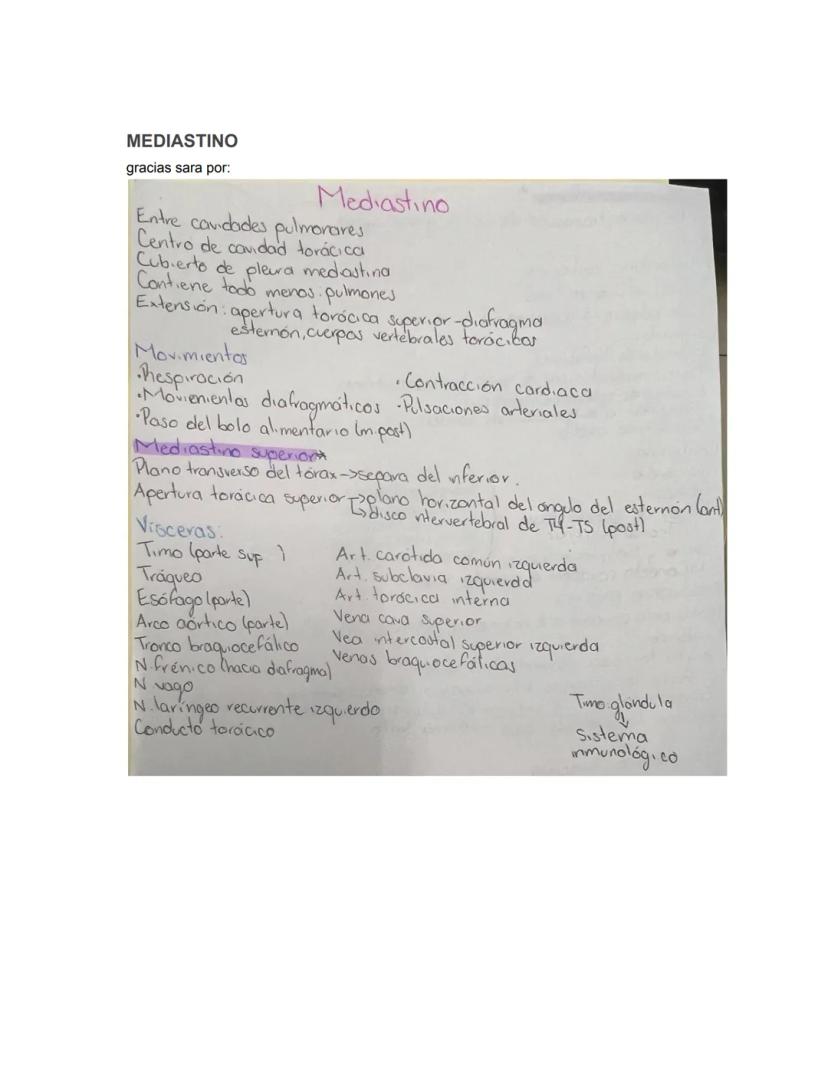 MEDIASTINO
gracias sara por:
Mediastino
Entre cavidades pulmonares
Centro de cavidad torácica
Cubierto de pleura mediastina
Contiene todo menos: pulmones
Extensión: apertura torácica superior-diafragma
esternón, cuerpos vertebrales torácicas
Movimientos
·Respiración ·Contracción cardiaca
·Movimientos diafragmáticos ·Pulsaciones arteriales
·Paso del bolo alimentario (m.post)
Mediastino superior*
Plano transverso del tórax->separa del inferior.
Apertura torácica superior->plano horizontal del angulo del esternón (ant)
↳disco intervertebral de T4-T5 (post)
Vísceras:
Timo (parte sup ) Art. carótida común izquierda
Tráquea Art. subclavia izquierda
Esófago (parte) Art. torácica interna
Arco aórtico (parte) Vena cava superior
Tronco braquiocefálico Vea intercostal superior izquierda
N. frénico (hacia diafragma) Venas braquiocefálicas
N vago
N. laríngeo recurrente izquierdo
Conducto torácico
Timo: glándula
↓
Sistema
inmunológico